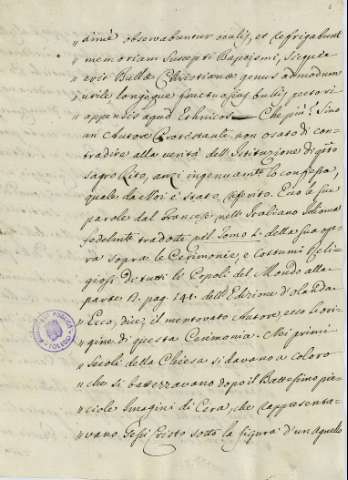 " dinè observabantur oculis, et refrigabunt
" memoriam suscepti Baptismi, sicque
" erit Bulla Christiana genus admodum
" utile, longèque fructuosius bullis, pectori
" appensis apud Ethnicos — Che più? Sino
un' Autore Protestante non osato di con-
tradire alla verità dell'Istituzione di questo
sagro Rito, anzi ingenuamente lo confessa,
quale da Noi è stato riferito. Ecco le sue
parole dal Francese nell'Italiano Idioma
fedelmente tradotte nel Tomo 2. della sua ope-
ra sopra le Cerimonie, e Costumi Reli-
giosi di tutti li Popoli del Mondo alla
parte pag. 141. dell'Edizione d'Olanda
" Ecco, dice il mentovato Autore, ecco l'ori-
" gine di questa Cerimonia. Nei primi
" Secoli della Chiesa si davano a coloro
" che si battezzavano dopo il Battesimo pic-
" ciole Imagini di Cera, che rappresenta-
" vano Gesù Cristo sotto la figura d'un Agnello